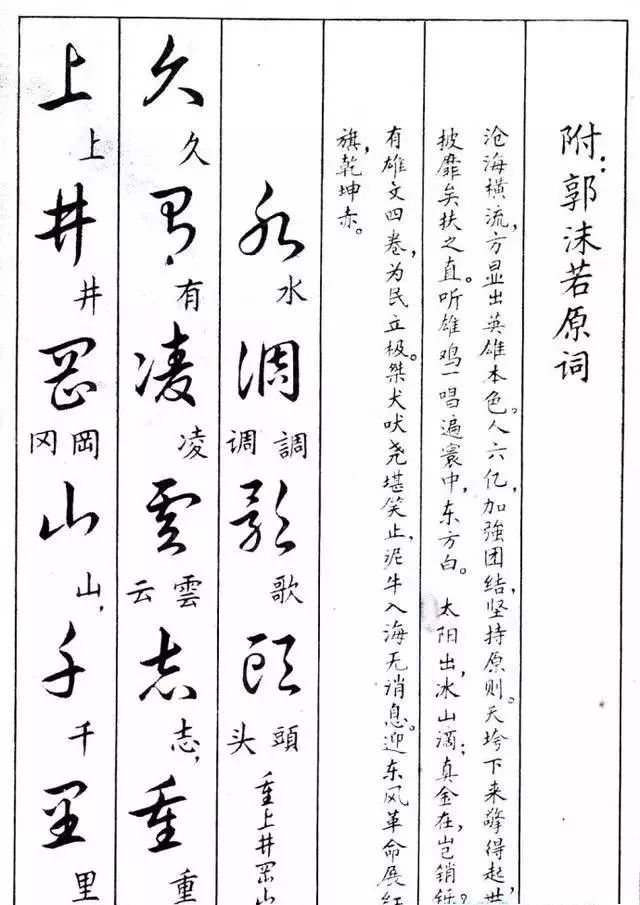 附:郭沫若原词
沧海横流,方显出英雄本色。人六亿,加強团结,坚持原则。天垮下来擎得起,世
披靡矣扶之直。听雄鸡一唱遍寰中,东方白。 太阳出,冰山滴;真金在,岂销铄
有雄文四卷,为民立极。桀犬吠尧堪笑止,泥牛入海无消息。迎东风革命展红
旗,乾坤赤。
水調歌頭
水調调歌頭头
重上井冈山
久有凌雲志重
久有凌雲云志,重
上井岡山千里
上井岡冈山,千里